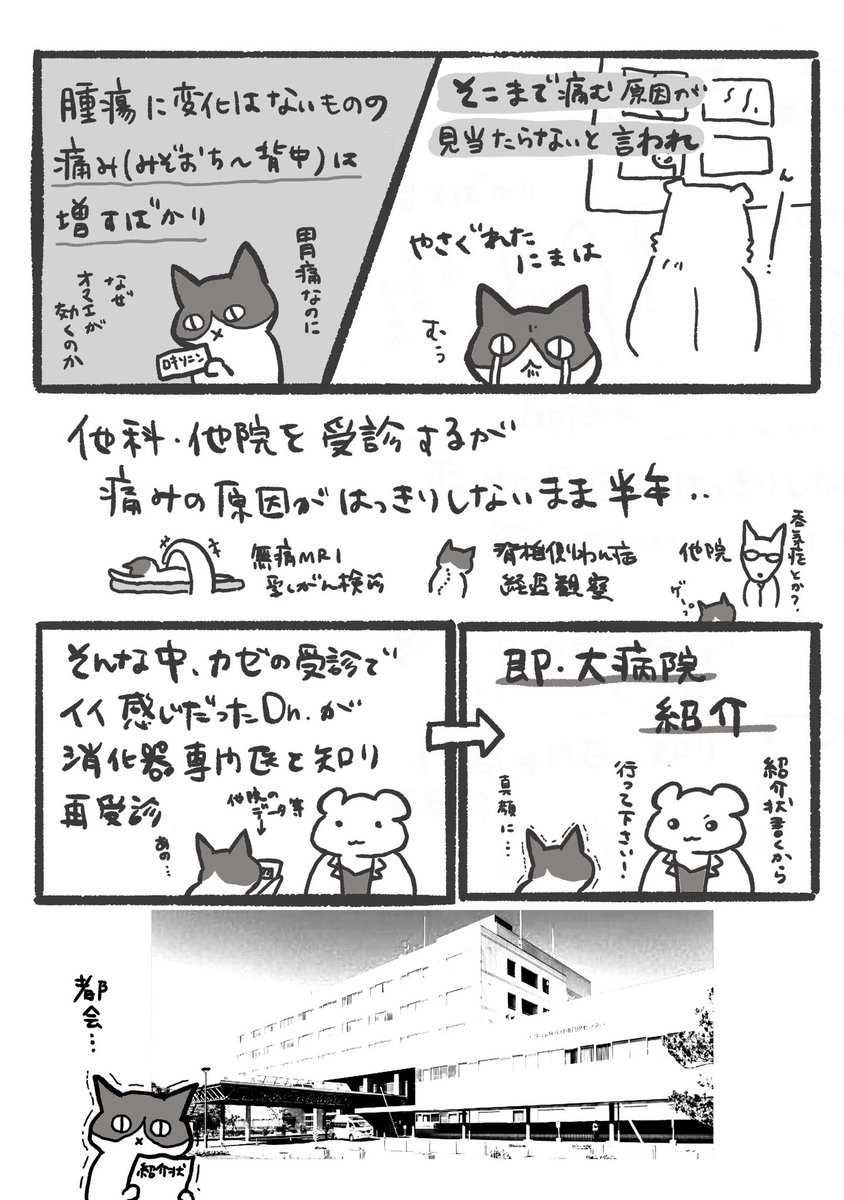 腫瘍に変化はないものの
痛み(みぞおち〜背中)は
増すばかり
胃痛なのに
なぜ
オマエが
効くのか
ロキソニン
そこまで痛む原因が
見当たらないと言われ
ん
やさぐれた
にまは
むぅ
他科・他院を受診するが
痛みの原因がはっきりしないまま半年..
無痛MRI
乳がん検診
脊椎側わん症
経過観察
他院
呑気症とか?
ゲー
そんな中、カゼの受診で
イイ感じだったDr.が
消化器専門医と知り
再受診
他院の
データ等
あの…
即・大病院
紹介
紹介状書くから
行って下さい!
真顔に…
都会…
紹介状